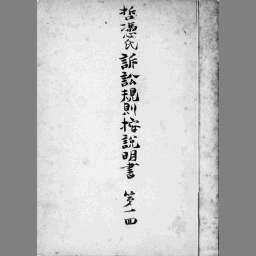 哲憑氏訴訟規則按説明書 第一四